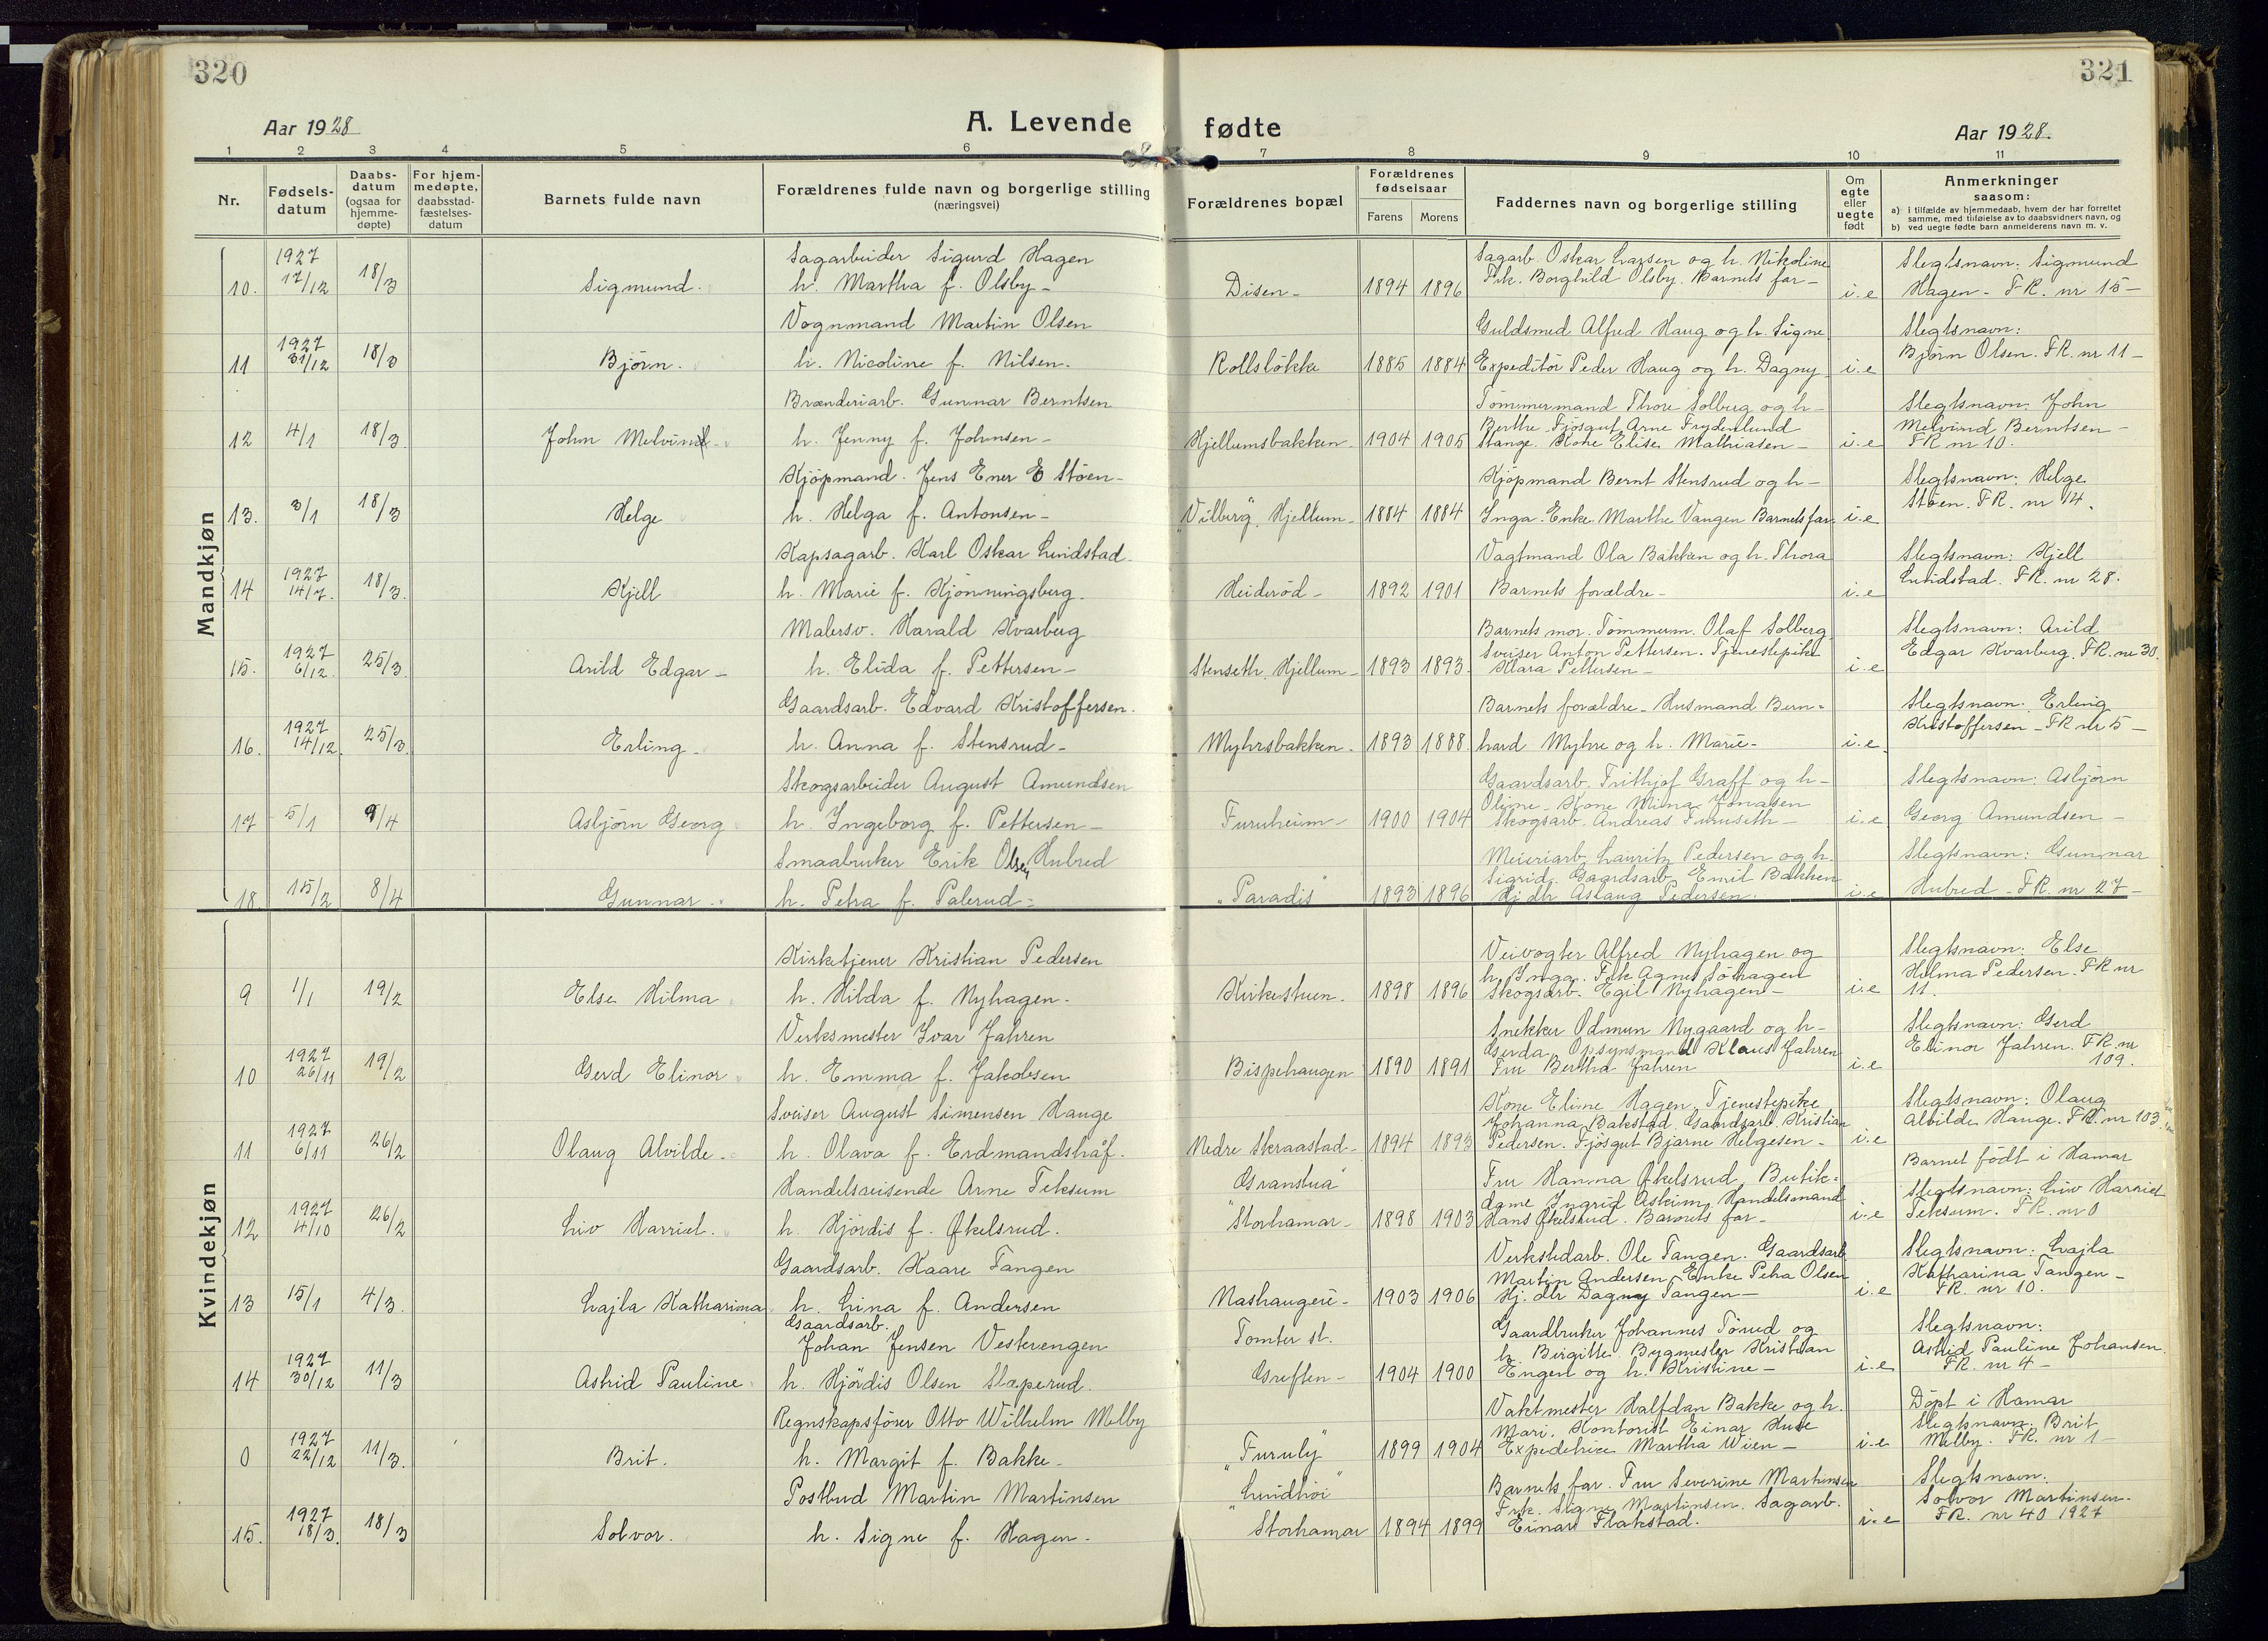 320
321
Aar 1928
A. Levende fødte
Aar 1928.
1 2 3 4 5 6 7 8 9 10 11
Nr.
Fødsels-
datum
Daabs-
datum
(ogsaa for
hjemme-
døpte)
For hjem-
medøpte,
daabsstad-
fæstelses-
datum
Barnets fulde navn
Forældrenes fulde navn og borgerlige stilling
(næringsvei)
Forældrenes bopæl
Forældrenes
fødselsaar
Farens Morens
Faddernes navn og borgerlige stilling
Om
egte
eller
uegte
født
Anmerkninger
saasom:
a) i tilfælde av hjemmedaab, hvem der har forrettet
samme, med tilføielse av to daabsvidners navn, og
b) ved uegte fødte barn anmelderens navn m. v.
Mandkjøn
10. 1927 17/12 18/3 Sigmund.
Sagarbeider Sigurd Hagen
h. Martha f. Olsby-
Disen- 1894 1896
Sagarb. Oskar Larsen og h. Nikoline
Frk. Borghild Olsby. Barnets far-
i.e
Slegtsnavn: Sigmund
Hagen - FR. nr 15-
11 1927 31/12 18/3 Bjørn.
Vognmand Martin Olsen
h. Nicoline f. Nilsen.
Rollsløkke 1885 1884
Guldsmed Alfred Haug og h. Signe
Expeditør Peder Haug og h. Dagny
i.e
Slegtsnavn:
Bjørn Olsen. FR. nr 11-
12 4/1 18/3. John Melvind.
Brænderiarb. Gunnar Berntsen
h. Jenny f. Johnsen-
Hjellumsbakken- 1904 1905
Tømmermand Thore Solberg og h-
Berthe Fjøsgut Arne Frydenlund
Stange. Kone Elise Mathiasen-
i.e
Slegtsnavn: John
Melvind Berntsen-
FR nr 10.
13. 3/1 18/3 Helge
Kjøpmand. Jens Ener E Støen-
h. Helga f. Antonsen-
"Vilberg", Hjellum- 1884 1884
Kjøpmand Bernt Stensrud og h-
Inga. Enke Marthe Vangen Barnets far.
i.e
Slegtsnavn: Helge
Støen. FR. nr 14.
14 1927 14/7. 18/3. Kjell
Kapsagarb. Karl Oskar Lundstad.
h. Marie f. Kjønningsberg.
Heiderød- 1892 1901
Vagtmand Ola Bakken og h. Thora
Barnets forældre-
i.e
Slegtsnavn: Kjell
Lundstad. FR. nr 28.
15. 1927 6/12. 25/3 Arild Edgar-
Malersv. Harald Kvarberg
h. Elida f. Pettersen-
Stenseth, Hjellum- 1893 1893.
Barnets mor. Tømmerm. Olaf Solberg
Sveiser Anton Pettersen. Tjenestepike
Klara Pettersen-
i.e
Slegtsnavn: Arild
Edgar Kvarberg. FR. nr 30.
16. 1927 14/12. 25/3. Erling.
Gaardsarb. Edvard Kristoffersen.
h. Anna f. Stensrud-
Myhrsbakken. 1893 1888.
Barnets forældre- Husmand Bern-
hard Myhre og h. Marie-
i.e.
Slegtsnavn: Erling
Kristoffersen - FR nr 5-
17 5/1 9/4 Asbjørn Georg
Skogsarbeider August Amundsen
h. Ingeborg f. Pettersen-
Furuheim- 1900 1904
Gaardsarb. Frithjof Graff og h-
Oline- Kone Mina Jonasen
Skogsarb. Andreas Furuseth-
i.e
Slegtsnavn: Asbjørn
Georg Amundsen-
18 15/2 8/4 Gunnar.
Smaabruker Erik Olsen Hubred
h. Petra f. Palerud-
"Paradis" 1893 1896
Meieriarb. Lauritz Pedersen og h.
Sigrid. Gaardsarb. Emil Bakken
Hj. dtr Aslaug Pedersen.
i.e
Slegtsnavn: Gunnar
Hubred - FR. nr 27-
Kvindekjøn
9 1/1 19/2 Else Hilma
Kirketjener Kristian Pedersen
h. Hilda f. Nyhagen.
Kirkestuen. 1898 1896
Veivogter Alfred Nyhagen og
h. Inga. Frk Agnes Søhagen
Skogsarb. Egil Nyhagen-
i.e
Slegtsnavn: Else
Hilma Pedersen. FR nr
11.
10 1927 26/11 19/2 Gerd Elinor
Verksmester Ivar Jahren
h. Emma f. Jakobsen
Bispehaugen 1890 1891
Snekker Odmun Nygaard og h-
Gerda Opsynsmand Klaus Jahren
Fru Bertha Jahren
i.e
Slegtsnavn: Gerd
Elinor Jahren. FR. nr
109.
11 1927 6/11 26/2 Olaug Alvilde.
Sveiser August Simensen Hauge
h. Olava f. Erdmandshåf.
Nedre Skraastad- 1894 1893
Kone Eline Hagen. Tjenestepike
Johanna Bakstad. Gaardsarb. Kristian
Pedersen. Fjøsgut Bjarne Helgesen-
i.e
Slegtsnavn: Olaug
Alvilde Hauge. FR. nr 103.
12 1927 4/10 26/2 Liv Harriet.
Handelsreisende Arne Teksum
h. Hjørdis f. Økelsrud.
Granstua
"Storhamar- 1898 1903
Fru Hanna Økelsrud, Butik-
dame Ingrid Askim, Handelsmand
Hans Økelsrud. Barnets far-
i.e
Barnet født i Hamar
Slegtsnavn: Liv Harriet
Teksum. FR. nr 0
13 15/1 4/3. Lajla Katharina
Gaardsarb. Kaare Tangen
h. Lina f. Andersen
Nashaugeie- 1903 1906
Verkstedarb. Ole Tangen. Gaardsarb
Martin Andersen. Enke Petra Olsen
Hj. dtr Dagny Tangen-
i.e
Slegtsnavn: Lajla
Katharina Tangen-
FR. nr 10.
14 1927 30/12 11/3 Astrid Pauline
Gaardsarb.
Johan Jensen Vesterengen
h. Hjørdis Olsen Slæperud.
Tomter st.
Greften- 1904 1900
Gaardbruker Johannes Tørud og
h. Birgitte. Bygmester Kristian
Engen og h. Kristine-
i.e
Slegtsnavn:
Astrid Pauline Johansen.
FR. nr 4-
0 1927 22/12 11/3. Brit.
Regnskapsfører Otto Wilhelm Melby
h. Margit f. Bakke-
"Furuly" 1899 1904
Vaktmester Halfdan Bakke og h.
Mari. Kontorist Einar Huse
Expeditrice Martha Wien-
i.e
Døpt i Hamar
Slegtsnavn: Brit
Melby. FR. nr 1-
15. 1927 18/3. 18/3 Solvor.
Postbud Martin Martinsen
h. Signe f. Hagen-
"Lundhøi"
Storhamar 1894 1899
Barnets far. Fru Severine Martinsen
Frk. Signe Martinsen. Sagarb.
Einar Flakstad.
i.e
Slegtsnavn:
Solvor Martinsen.
FR. nr 40 1927